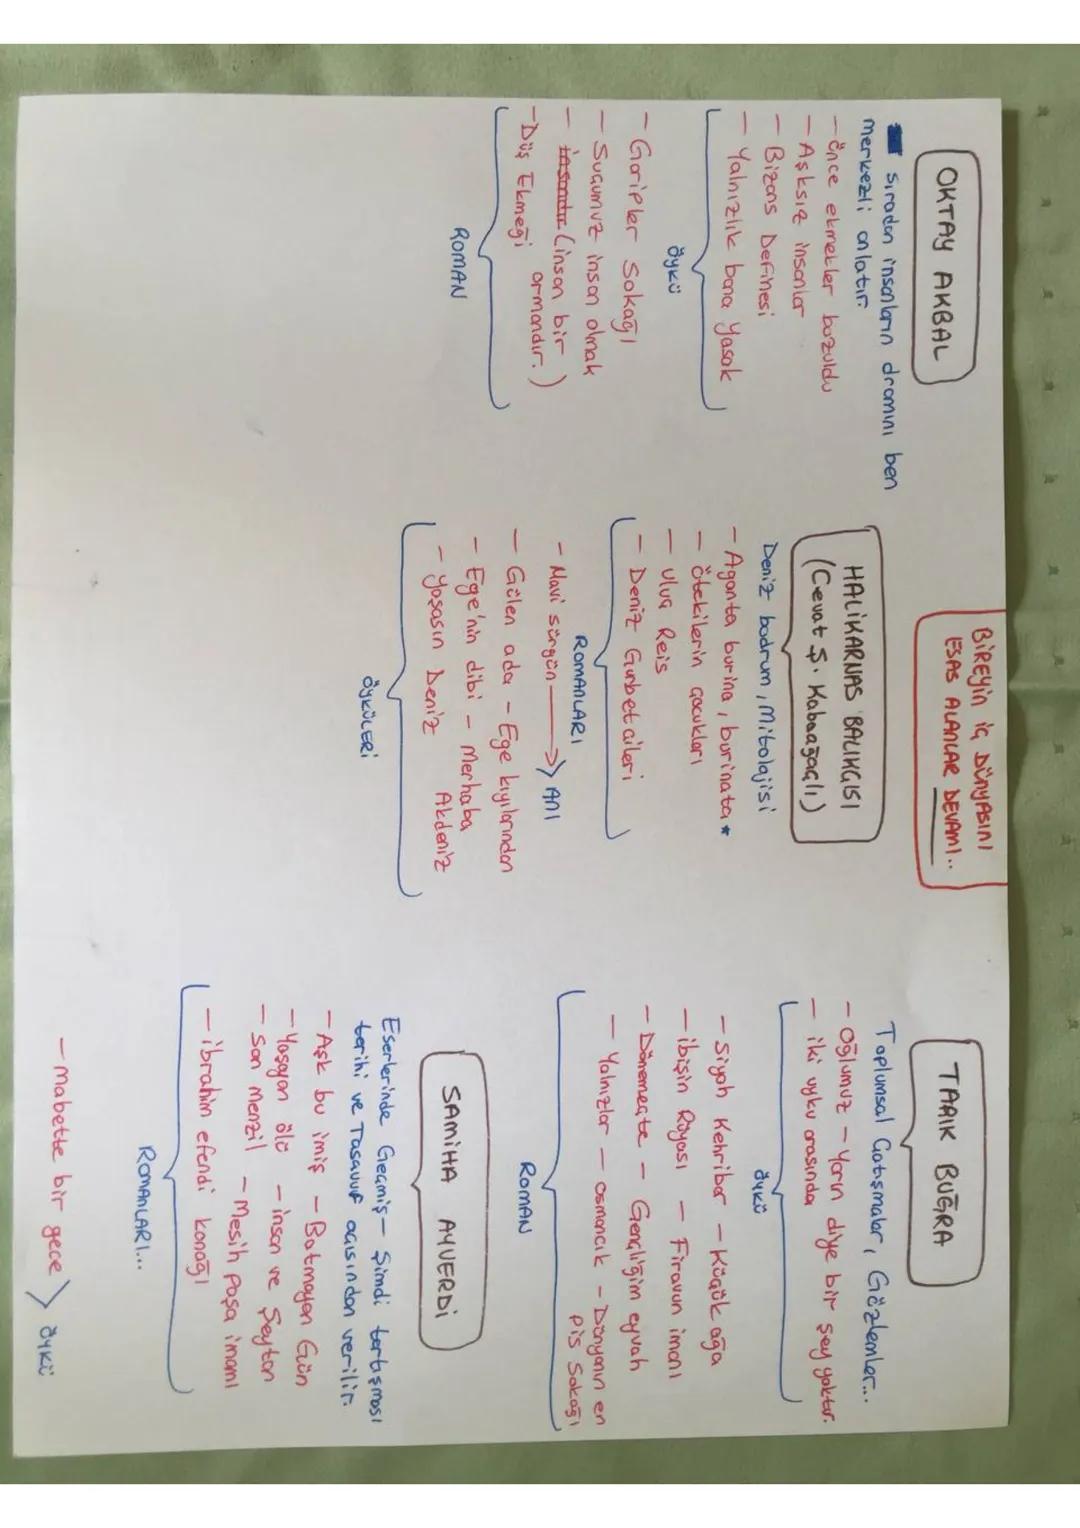 BİREYİN İÇ DÜNYASINI
ESAS ALANLAR DEVAMI..
OKTAY AKBAL
sıradan insanların dramını ben
merkezli anlatır.
- Önce ekmekler bozuldu
- Aşksız insanlar
- Bizans Definesi
- Yalnızlık bana Yasak
öykü
- Garipler Sokağı
- Suçumuz insan olmak
- (insan bir
ormandır.)
- Düş Ekmeği
ROMAN
HALİKARNAS BALIKÇISI
(Cevat Ş. Kabaağaçlı)
Deniz bodrum, Mitolojisi
- Aganta burina, burinata *
- Ötekilerin çocukları
- Uluç Reis
- Deniz Gurbetçileri
ROMANLARI
- Mavi sürgün → ANI
- Gülen ada - Ege kıyılarından
- Ege'nin dibi - Merhaba
Akdeniz
- Yaşasın Deniz
öyküLERİ
TARIK BUĞRA
Toplumsal Çatışmalar, Gözlemler...
- Oğlumuz - Yarın diye bir şey yoktur.
- iki uyku arasında
öykü
- Siyah Kehribar - Küçük ağa
- ibişin Rüyası - Firavun imanı
- Dönemeçte - Gençliğim eyvah
- Yalnızlar - osmancık - Dünyanın en
pis Sokağı
ROMAN
SAMİHA AYVERDİ
Eserlerinde Geçmiş - Şimdi tartışması
tarihi ve Tasavvuf açısından verilir.
- Aşk bu imiş - Batmayan Gün
- Yaşayan ölü - insan ve Şeytan
- Son menzil - Mesih paşa imamı
- ibrahim efendi konağı
ROMANLARI...
- mabette bir gece > öykü